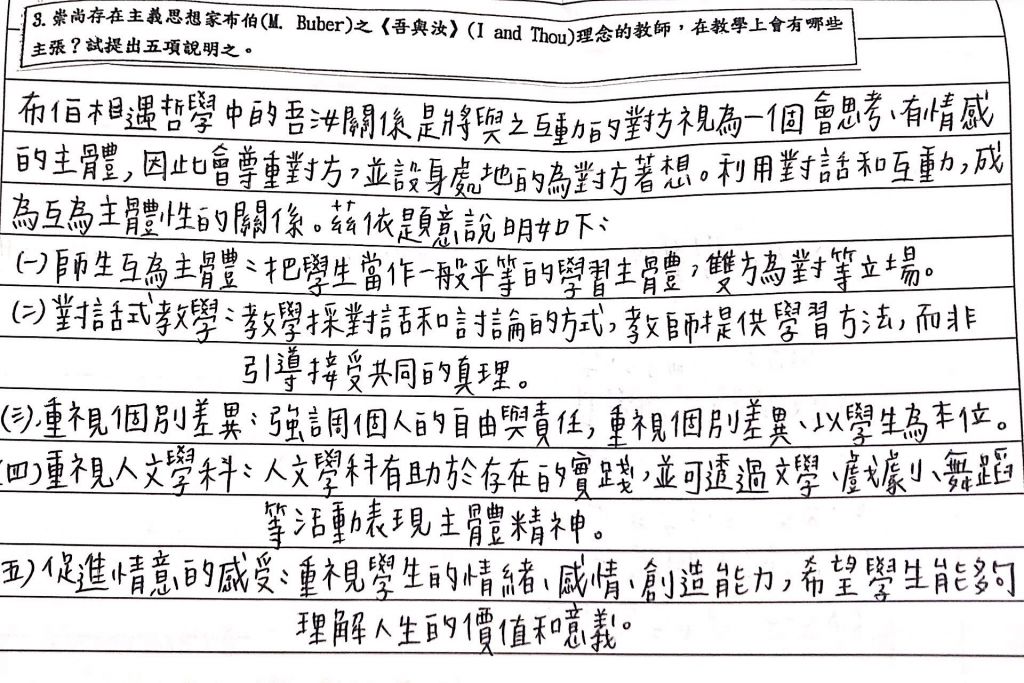 3.崇尚存在主義思想家布伯(M. Buber)之《吾與汝》(I and Thou)理念的教師，在教學上會有哪些
主張？試提出五項說明之。
布伯相遇哲學中的吾汝關係是將與之互動的對方視為一個會思考、有情感
的主體，因此會尊重對方，並設身處地的為對方著想。利用對話和互動，成
為互為主體性的關係。茲依題意說明如下：
(一)師生互為主體：把學生當作一般平等的學習主體，雙方為對等立場。
(二)對話式教學：教學採對話和討論的方式，教師提供學習方法，而非
引導接受共同的真理。
(三)重視個別差異：強調個人的自由與責任，重視個別差異、以學生為本位。
(四)重視人文學科：人文學科有助於存在的實踐，並可透過文學、戲劇、舞蹈
等活動表現主體精神。
五)促進情意的感受：重視學生的情緒、感情、創造能力，希望學生能夠
理解人生的價值和意義。